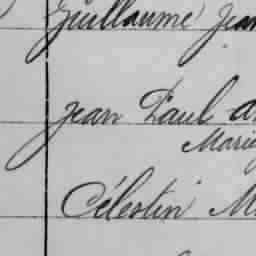 Guillaume Jean
Jean Paul
Célestin